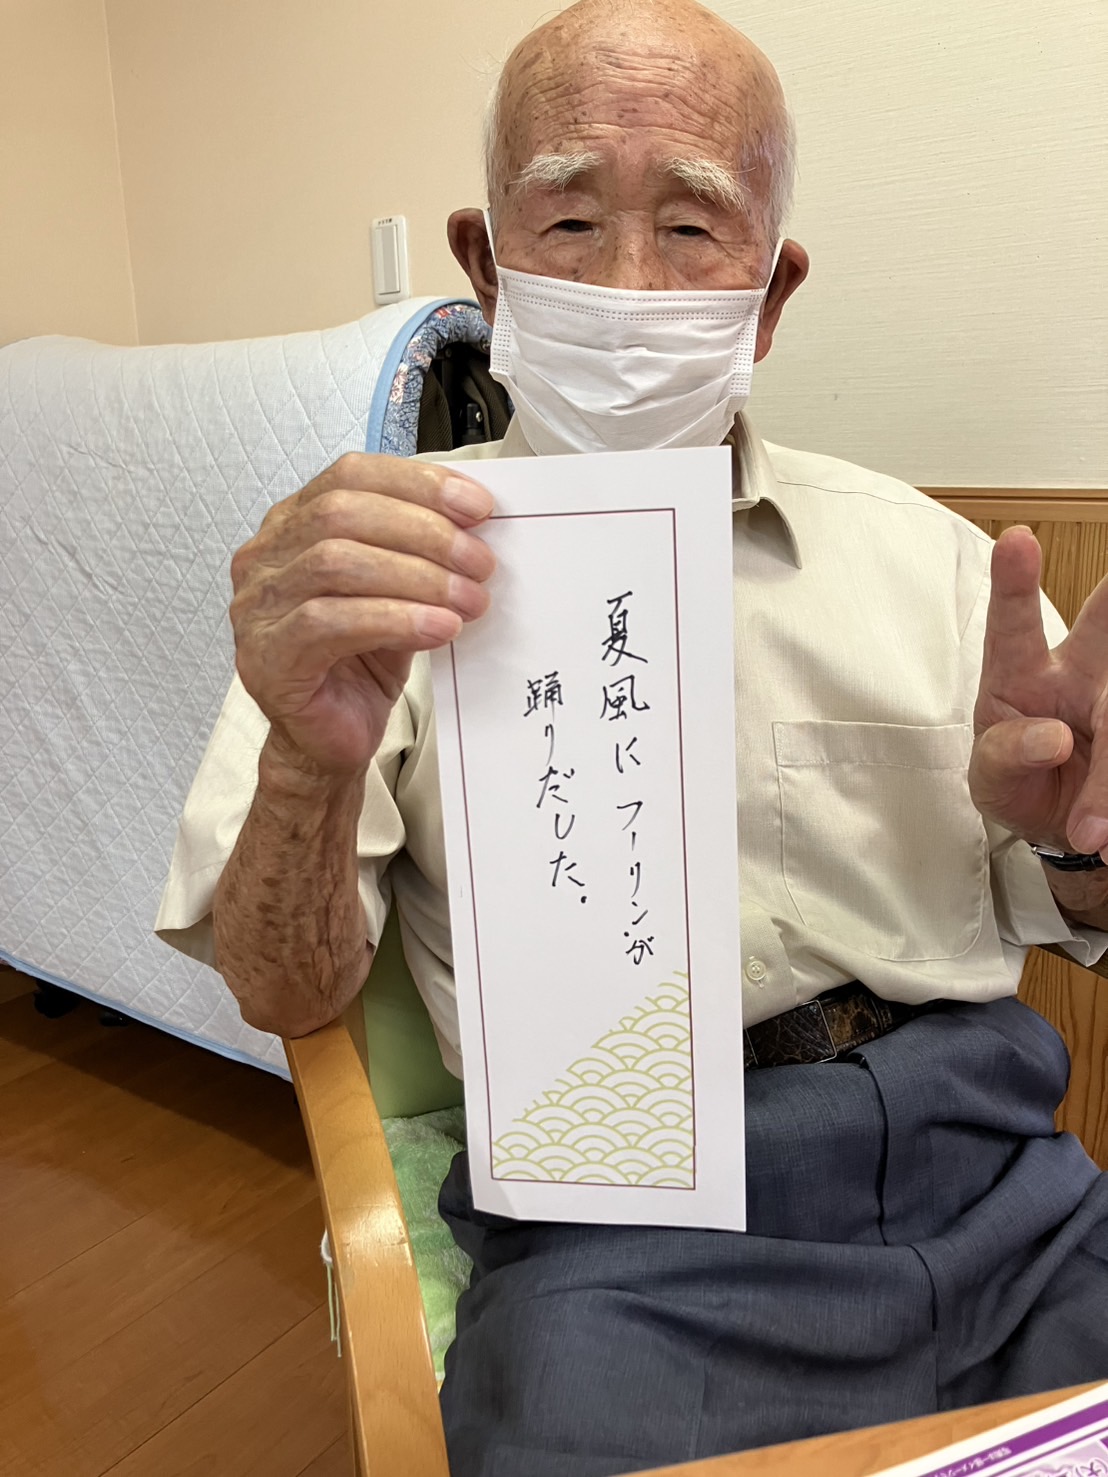 夏風にフーリンが
踊りだした.